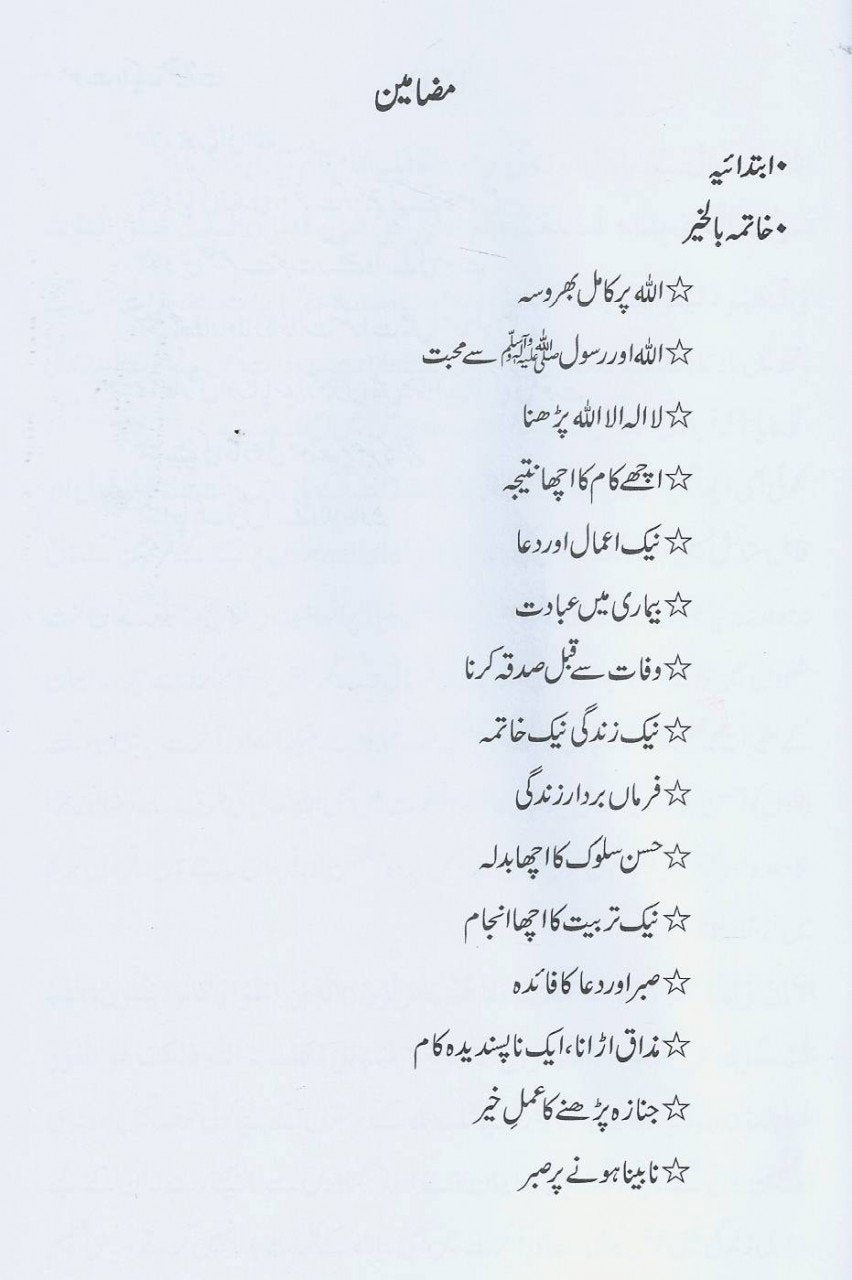 مضامین
• ابتدائیہ
• خاتمہ بالخیر
☆ اللہ پر کامل بھروسہ
☆ اللہ اور رسول ﷺ سے محبت
☆ لا الہ الا اللہ پڑھنا
☆ اچھے کام کا اچھا نتیجہ
☆ نیک اعمال اور دعا
☆ بیماری میں عبادت
☆ وفات سے قبل صدقہ کرنا
☆ نیک زندگی نیک خاتمہ
☆ فرماں بردار زندگی
☆ حسن سلوک کا اچھا بدلہ
☆ نیک تربیت کا اچھا انجام
☆ صبر اور دعا کا فائدہ
☆ مذاق اڑانا، ایک ناپسندیدہ کام
☆ جنازہ پڑھنے کا عملِ خیر
☆ نابینا ہونے پر صبر